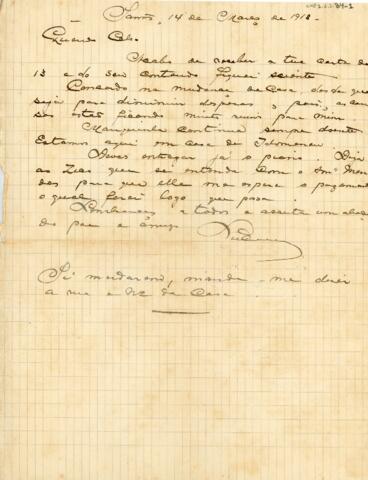 Santos, 14 de Março de 1918 -
Querido Celso
Acabo de receber a tua carta de
13 e do seu conteudo fiquei sciente
Concordo na mudança de casa, desde que
seja para diminuir despezas, pois, as cou
sas estão ficando muito ruins para mim
continua sempre doente
Estamos aqui em casa de
Deves entregar já o piano. Diga
ao Zeca que se entenda com o Snr. Men
des para que elle me espere o pagamento
o qual farei logo que possa.
Lembranças a todos e aceita um abraço
do pae e amigo
Si mudarem, manda-me dizer
a rua e Nº da Casa